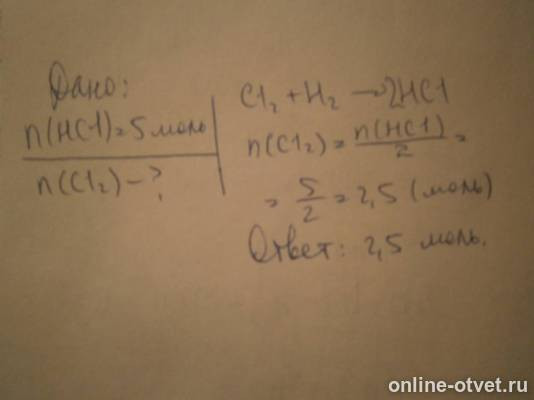 Дано:
n(HCl)=5 моль
n(Cl₂)-?
Cl₂ + H₂ → 2HCl
n(Cl₂) = n(HCl)/2 =
= 5/2 = 2,5 (моль)
Ответ: 2,5 моль.
online-otvet.ru